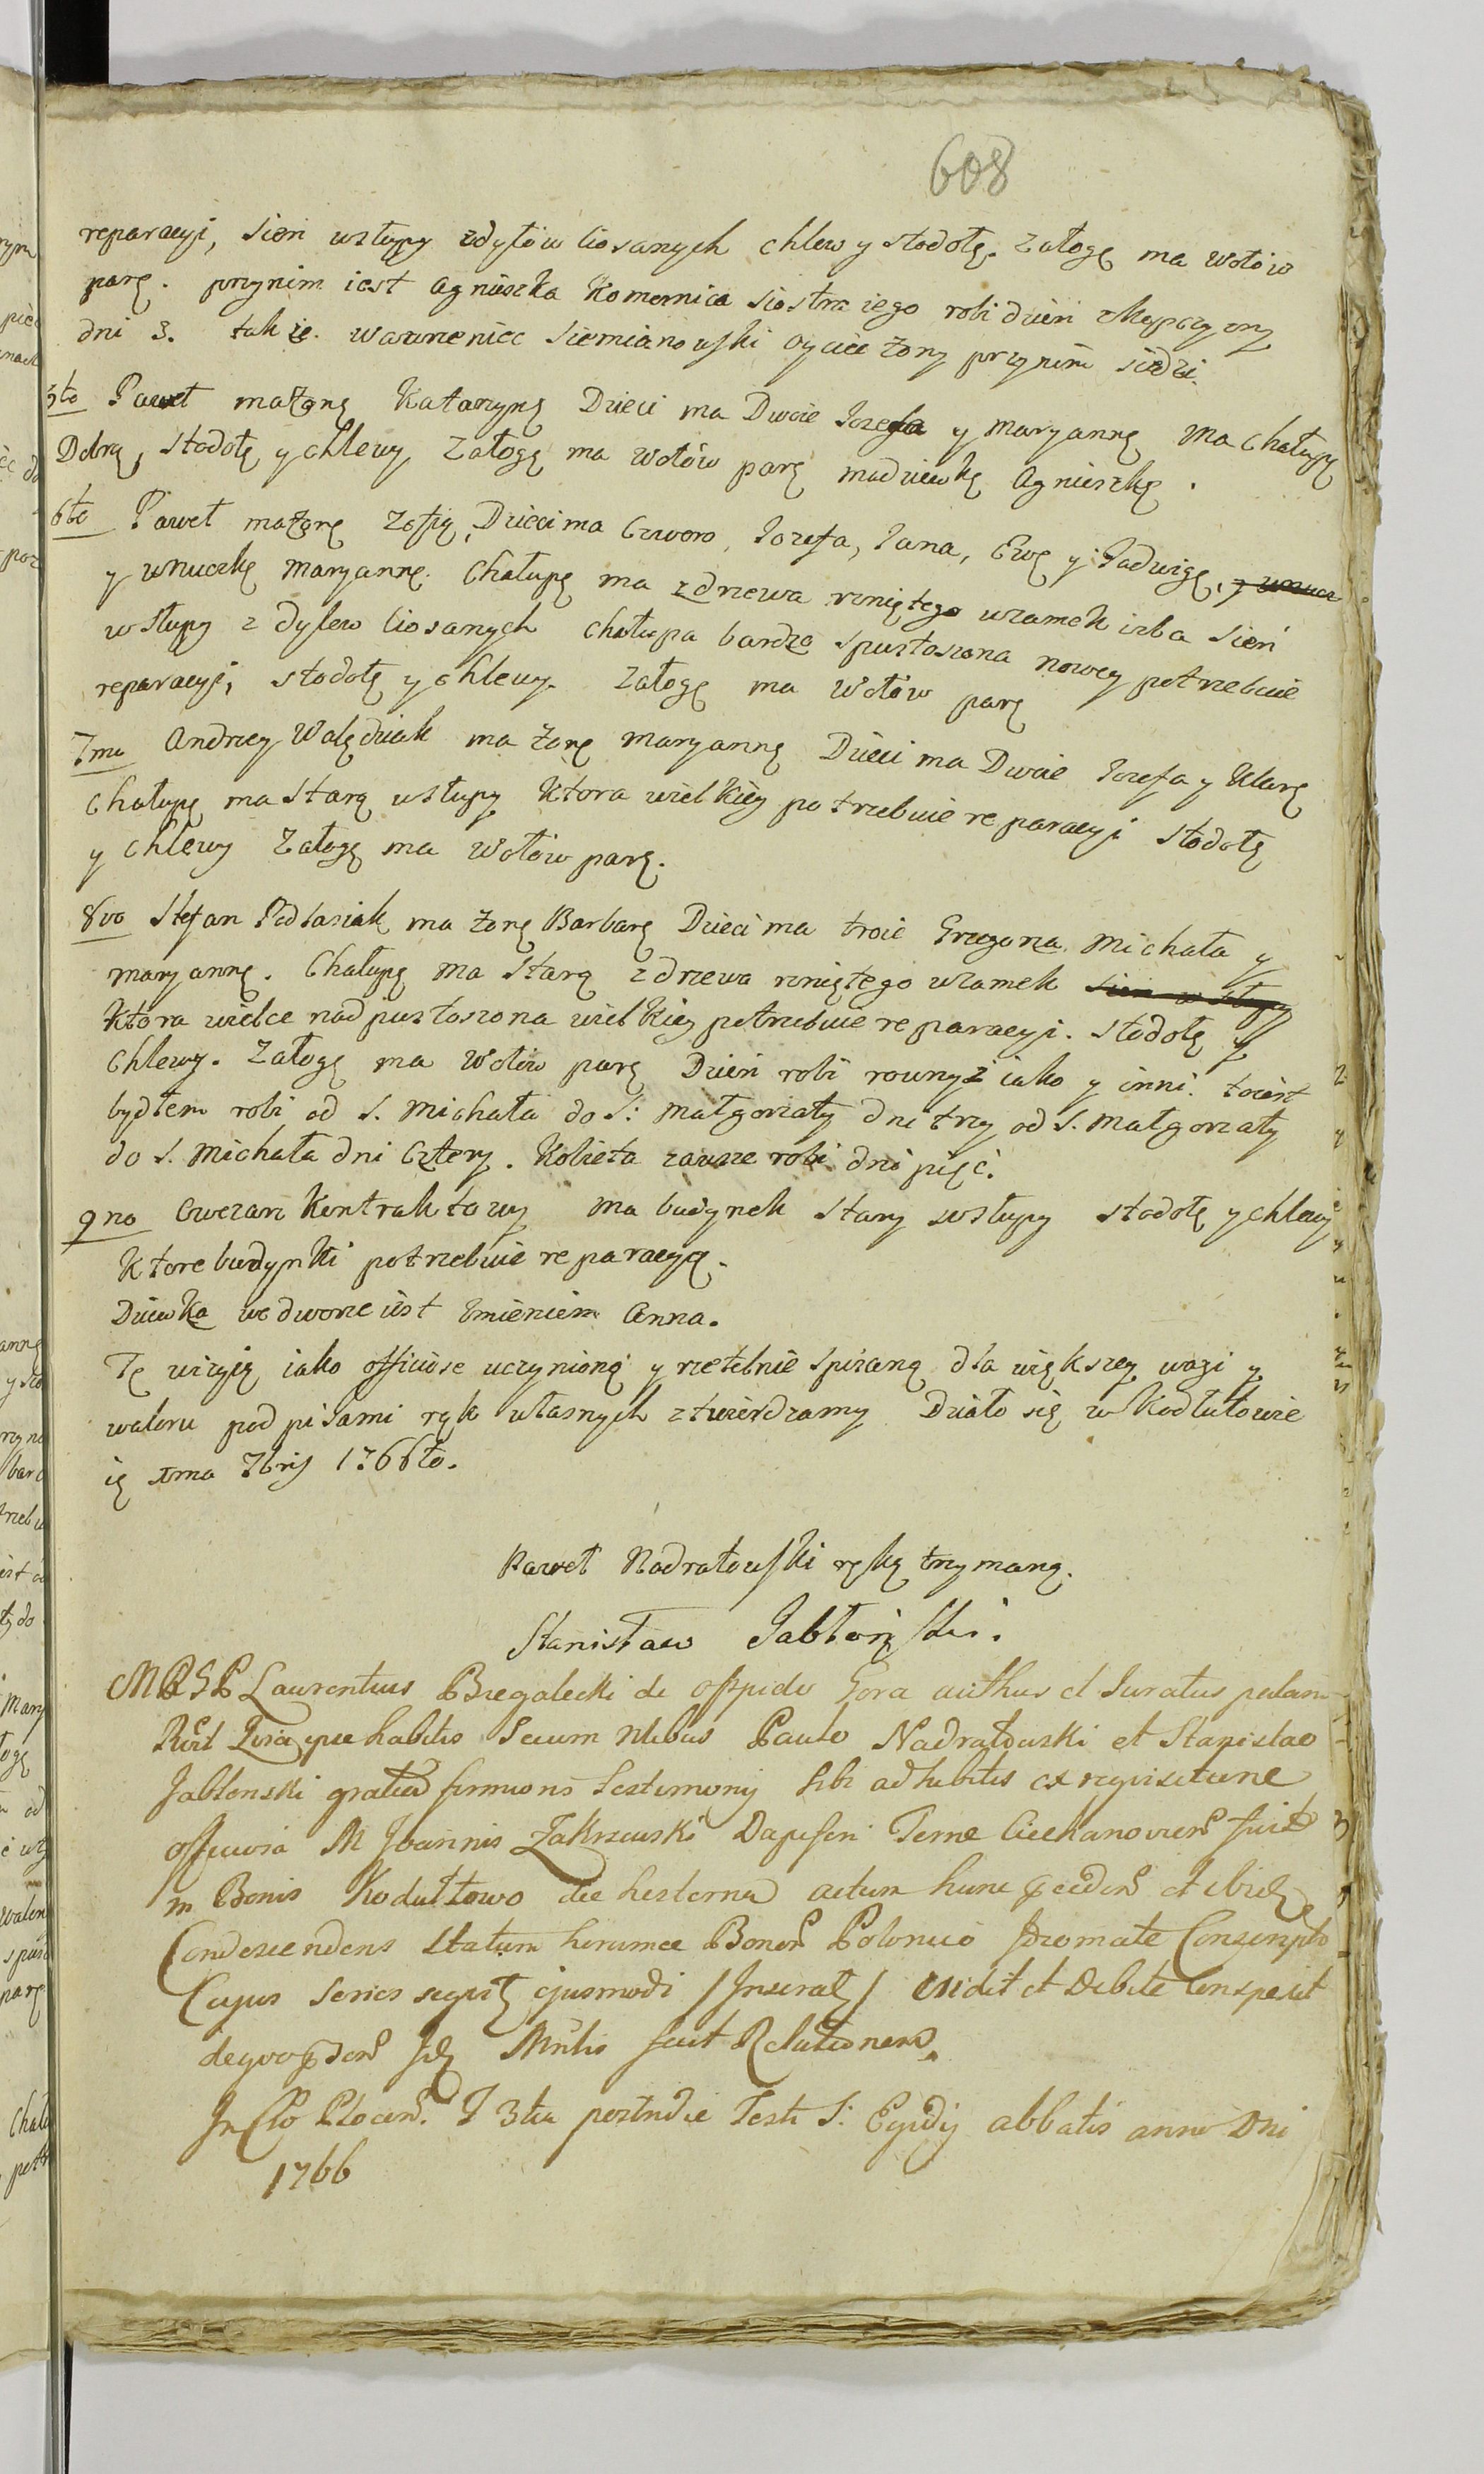 608
reparacyi, sień wsłupy zdylów ciosanych chlew y stodołę. Załogę ma wołów
parę. przynim iest Agnieszka Komornica siostra iego robi dzień
dni 3. także. Wawrzeniec Siemianowski oyciec żony przynim siedzi.
5to Paweł mażonę Katarzynę Dzieci ma Dwoie Iozefa y Maryannę Ma Chałupę
Dobrą, stodołę y chlewy Załogę ma wołów parę madziewkę Agnieszkę.
6to Paweł mażonę Zofię, Dzieci ma Czworo, Iozefa, Iana, Ewę y Iadwigę, y wnucz
y wnuczkę Maryannę. Chałupę ma zdrzewa rzniętego wzamek izba sień
wsłupy z dylew ciosanych chałupa bardzo spustoszona nowey potrzebuie
reparacyi, stodołę y chlewy. Załogę ma Wołów parę
7mo Andrzey Walędziak ma żonę Maryannę Dzieci ma Dwoie Iozefa y Klarę
Chałupę ma starą wsłupy Ktora wielkiey potrzebuie reparacyi stodołę
y chlewy Załogę ma Wołów parę.
8vo Stefan Podlasiak ma żonę Barbarę Dzieci ma troie Grzegorza Michała y
Maryannę. Chałupę ma starą zdrzewa rzniętego wzamek sien w słupy
Ktora wielce nadpustoszona wielkiey potrzebuie reparacyi. stodołę y
Chlewy. Załogę ma Wołów parę Dzień robi rownyż iako y inni. toiest
bydłem robi od S. Michała do S: Małgorzaty dni trzy od S. Małgorzaty
do S. Michała dni Cztery. Kobieta zawsze robi dni pięć.
9no Owczarz Kontraktowy ma budynek stary wsłupy stodołę y chlewy
Ktore budynki potrzebuie reparacyą.
Dziewka we dworze iest Imieniem Anna.
Tę wizyię iako officiose uczynioną y rzetelnie spisaną dla większey wagi y
waloru podpisami ręk własnych ztwierdzamy Działo się w Kodłutowie
1ma 7bris 1766to.
Paweł Nadratowski ręką trzymaną.
Stanisław Iabłoński.
Laurentius Bregalecki de oppido Gora authus et Iuratus palam
habitis Secum Nobilibus Paulo Nadratowski et Stanislao
Jablonski gratia firmioris testimonij sibi adhibitis ex requisitione
officiosa M Joannis Zakrzewski Dapiferi Terrae Ciechanoviens fuit
in Bonis Kodułtowo die hesterna actum hunc et ibidem
Condescendens Statum horumce Bonorum Polonico Idiomate Conscripto
Cujus series sequitur ejusmodi / Inseratur / Vidit et Debite Conspexit
de quo idem Mnlis fecit Relationem.
In Cro Plocen. F 3tia postridie Festi S: Egidij abbatis anno Dni
1766